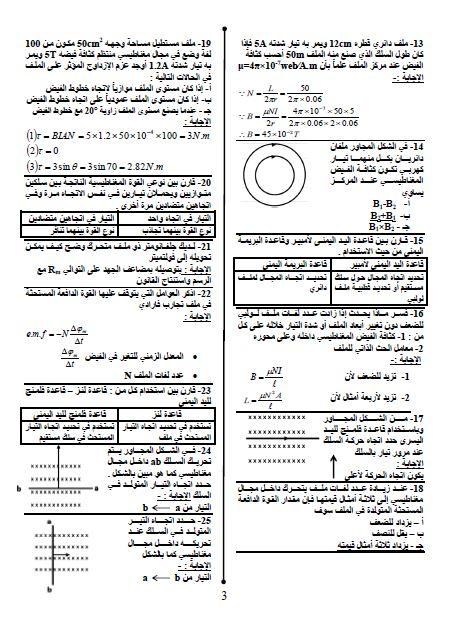 13- ملف دائري قطره 12cm ويمر به تيار شدته 5A فإذا
كان طول السلك الذي صنع منه الملف 50m أحسب كثافة
الفيض عند مركز الملف علماً بأن μ=4π×10⁻⁷web/A.m
الإجابة :-
∵ N = L / 2πr = 50 / 2π×0.06
∵ B = μNI / 2r = 4π×10⁻⁷×50×5 / 2π×0.06×2×0.06
∴ B = 45×10⁻²T
14- في الشكل المجاور ملفان
دائريان بكل منهما تيار
كهربي تكون كثافة الفيض
المغناطيسي عند المركز
يساوي
أ- B₁-B₂
ب- B₂+B₁
جـ - B₁×B₂
15- قارن بين قاعدة اليد اليمنى لأمبير وقاعدة البريمة
اليمنى من حيث الاستخدام .
قاعدة اليد اليمنى لأمبير
قاعدة البريمة اليمنى
تحديد اتجاه المجال حول سلك
مستقيم أو تحديد قطبية ملف
لولبي
تحديد اتجاه المجال لملف
دائري
16- فسر ماذا يحدث إذا زادت عدد لفات ملف لولبي
للضعف دون تغيير أبعاد الملف أو شدة التيار خلاله على كل
من : 1- كثافة الفيض المغناطيسي داخله وعلى محوره
2- معامل الحث الذاتي للملف
الإجابة :-
1- تزيد للضعف لأن B = μNI / ℓ
2- تزيد لأربعة أمثال لأن L = μN²A / ℓ
17- من الشكل المجاور
وباستخدام قاعدة فلمنج لليد
اليسرى حدد اتجاه حركة السلك
عند مرور تيار بالسلك
الإجابة :
يكون اتجاه الحركة لأعلى
18- عند زيادة عدد لفات ملف يتحرك داخل مجال
مغناطيسي إلى ثلاثة أمثال قيمتها فإن مقدار القوة الدافعة
المستحثة المتولدة في الملف سوف
أ – يزداد للضعف
ب – يقل للنصف
جـ - يزداد ثلاثة أمثال قيمته
19- ملف مستطيل مساحة وجهه 50cm² مكون من 100
لفة وضع في مجال مغناطيسي منتظم كثافة فيضه 5T ويمر
به تيار شدته 1.2A أوجد عزم الازدواج المؤثر على الملف
في الحالات التالية :
أ- إذا كان مستوى الملف موازياً لاتجاه خطوط الفيض
ب- إذا كان مستوى الملف عمودياً على اتجاه خطوط الفيض
جـ- عندما يصنع مستوى الملف زاوية 20° مع خطوط الفيض
الإجابة :
(1)τ = BIAN = 5×1.2×50×10⁻⁴×100 = 3N.m
(2)τ = 0
(3)τ = 3sin θ = 3sin 70 = 2.82N.m
20- قارن بين نوعي القوة المغناطيسية الناتجة بين سلكين
متوازيين ويحملان تيارين في نفس الاتجاه مرة وفي
اتجاهين متضادين مرة أخرى .
التيار في اتجاه واحد
التيار في اتجاهين متضادين
نوع القوة بينهما تجاذب
نوع القوة بينهما تنافر
21- لديك جلفانومتر ذو ملف متحرك وضح كيف يمكن
تحويله إلى فولتميتر
الإجابة : بتوصيله بمضاعف الجهد على التوالي Rₘ مع
الرسم واستنتاج القانون
22- أذكر العوامل التي يتوقف عليها القوة الدافعة المستحثة
في ملف تجارب فارادي
e.m.f = -N Δφₘ / Δt
• المعدل الزمني للتغير في الفيض Δφₘ / Δt
• عدد لفات الملف N
23- قارن بين استخدام كل من : قاعدة لنز – قاعدة فلمنج
لليد اليمني
قاعدة لنز
قاعدة فلمنج لليد اليمني
تستخدم في تحديد اتجاه التيار
المستحث في ملف
تستخدم في تحديد اتجاه التيار
المستحث في سلك مستقيم
24- في الشكل المجاور يتم
تحريك السلك ab داخل مجال
مغناطيسي كما هو مبين بالشكل .
حدد اتجاه التيار المتولد في
السلك الإجابة : -
التيار من b ← a
a
b
25- حدد اتجاه التيار
المتولد في السلك عند
تحريكه داخل مجال
مغناطيسي كما بالشكل
الإجابة : -
التيار من a ← b
a
b
3